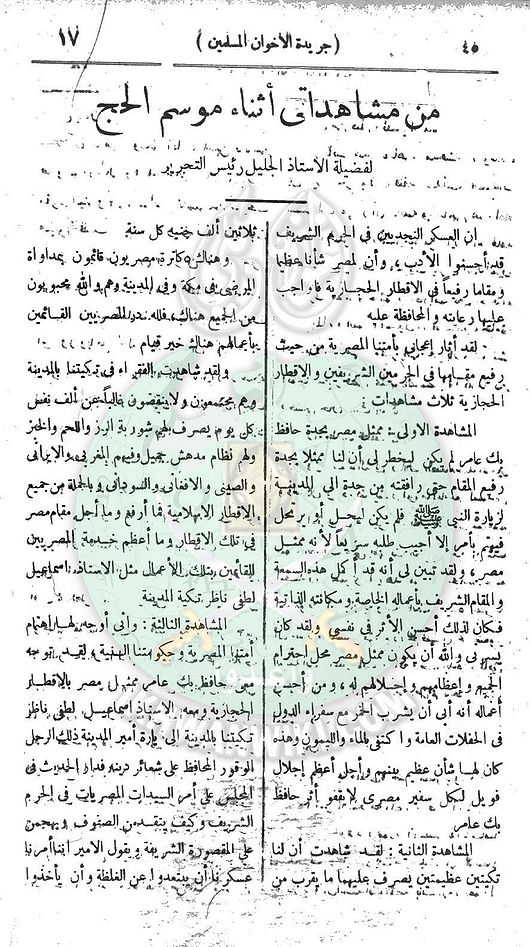 ٤٥
( جريدة الاخوان المسلمين )
١٧
من مشاهداتى أثناء موسم الحج
لفضيلة الأستاذ الجليل رئيس التحرير
ان العسكر النجديين في الحرم الشريف
قد أحسنوا الأدب، وأن لمصر شأنا عظيما
ومقاما رفيعاً في الاقطار الحجازية فالواجب
عليها رعايته والمحافظة عليه
لقد أثار اعجابى بأمتنا المصرية من حيث
رفيع مقامها في الحرمين الشريفين والاقطار
الحجازية ثلاث مشاهدات
المشاهدة الاولى : ممثل مصر بجدة حافظ
بك عامر لم يكن ليخطر لى أن لنا ممثلا بجدة
رفيع المقام حتى رافقته من جدة الى المدينة
لزيارة النبي ﷺ فلم يكن ليحل أو يرتحل
فيهتم بأمر إلا أجيب طلبه سريعاً لأنه ممثل
مصر، ولقد تبين لى أنه قد أكمل هذه السمعة
والمقام الشريف بأعماله الخاصة ومكانته الذاتية
فكان لذلك أحسن الأثر في نفسي ولقد كان
لى والله أن يكون ممثل مصر محل احترام
الجميع وإعظامهم وإجلالهم له، ومن أحسن
أعماله أنه أبى أن يشرب الخمر مع سفراء الدول
في الحفلات العامة واكتفى بالماء والليمون وهذه
كان لها شأن عظيم بينهم وأجل أعظم إجلال
فويل لكل سفير مصرى لا يقفو أثر حافظ
بك عامر
المشاهدة الثانية : لقد شاهدت أن لنا
تكيتين عظيمتين يصرف عليهما ما يقرب من
ثلاثين ألف جنيه كل سنة
وهناك دكاترة مصريون قائمون بمداواة
المرضى في مكة وفي المدينة وهم والله محبوبون
من الجميع هناك، فلله در المصريين القائمين
بأعمالهم هناك خير قيام
ولقد شاهدت الفقراء في تكيتنا بالمدينة
وهم مجتمعون ولا ينقصون غالباً عن ألف نفس
كل يوم يصرف لهم شوربة الرز واللحم والخبز
ولهم نظام مدهش جميل وفيهم المغربى والايرانى
والصينى والافغانى والسودانى وبالجملة من جميع
الاقطار الاسلامية فما أرفع وما أجل مقام مصر
في تلك الاقطار وما أعظم خدمة المصريين
القائمين بتلك الأعمال مثل الاستاذ اسماعيل
لطفى ناظر تكية المدينة
المشاهدة الثالثة : وانى أوجه لها اهتمام
أمتنا المصرية وحكومتنا البهية، لقد توجه
معى حافظ بك عامر ممثل مصر بالاقطار
الحجازية ومعه الاستاذ اسماعيل لطفى ناظر
تكيتنا بالمدينة الى زيارة أمير المدينة ذلك الرجل
الوقور المحافظ على شعائر دينه فدار الحديث في
المجلس على أمر السيدات المصريات في الحرم
الشريف وكيف يتقدمن الصفوف ويهجمن
على المقصورة الشريفة ويقول الامير اننا أمرنا
عسكرنا أن يبتعدوا عن الغلظة وأن يأخذوا